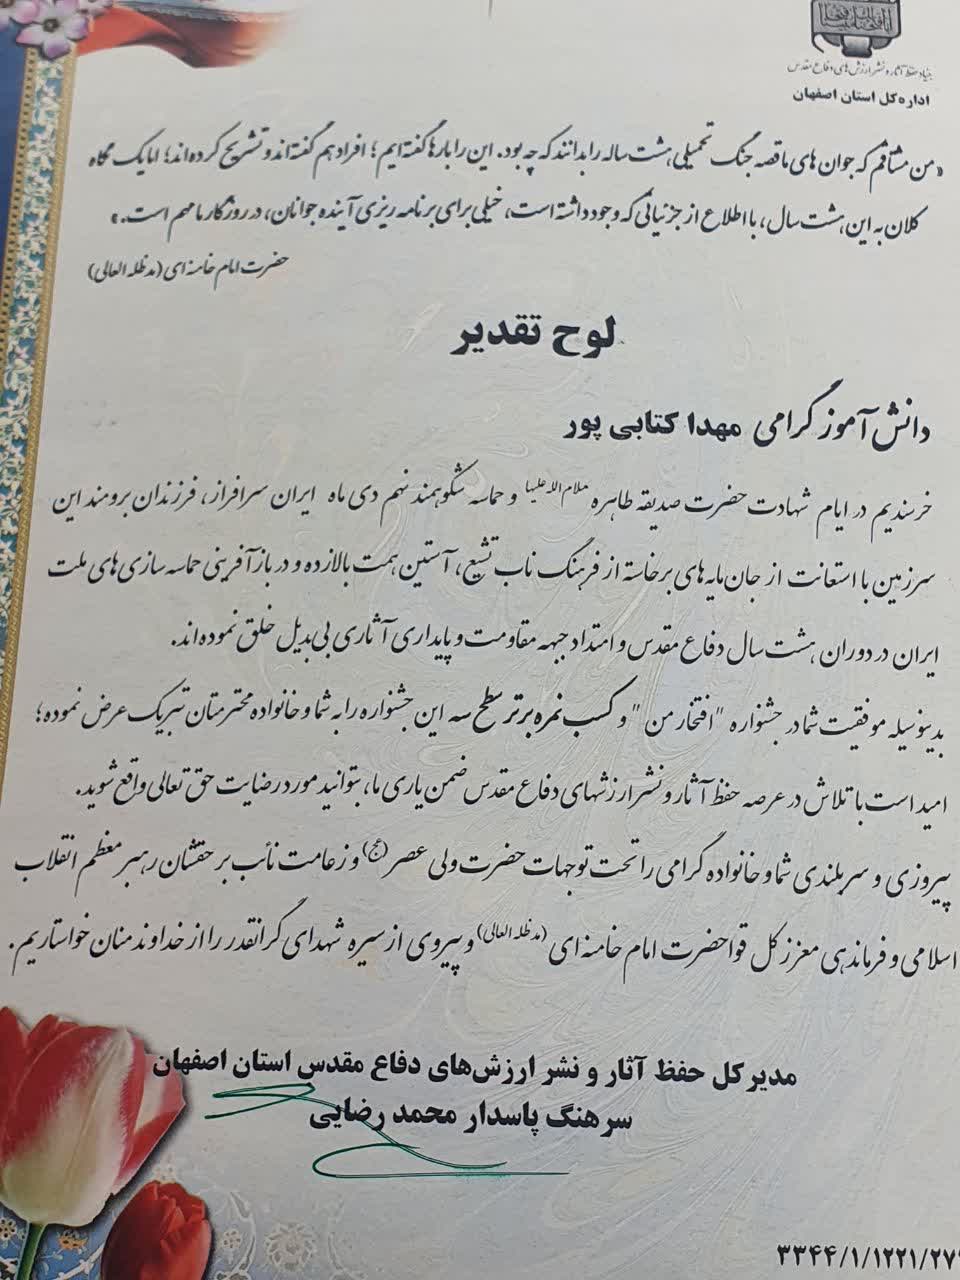 بنیاد حفظ آثار و نشر ارزش‌های دفاع مقدس
اداره کل استان اصفهان
«من مشتاقم که جوان های ما قصه جنگ تحمیلی هشت ساله را بدانند که چه بود. این را بارها گفته ایم؛ افراد هم گفته اند و تشریح کرده اند؛ اما یک نگاه
کلان به این هشت سال، با اطلاع از جزئیاتی که وجود داشته است، خیلی برای برنامه ریزی آینده جوانان، در روزگار ما مهم است.»
حضرت امام خامنه ای (مدظله العالی)
لوح تقدیر
دانش آموز گرامی مهدا کتابی پور
خرسندیم در ایام شهادت حضرت صدیقه طاهره سلام الله علیها و حماسه شکوهمند نهم دی ماه ایران سرافراز، فرزندان برومند این
سرزمین با استعانت از جان مایه های برخاسته از فرهنگ ناب تشیع، آستین همت بالا زده و در بازآفرینی حماسه سازی های ملت
ایران در دوران هشت سال دفاع مقدس و امتداد جبهه مقاومت و پایداری آثاری بی بدیل خلق نموده اند.
بدینوسیله موفقیت شما در جشنواره "افتخار من" و کسب نمره برتر سطح سه این جشنواره را به شما و خانواده محترمتان تبریک عرض نموده؛
امید است با تلاش در عرصه حفظ آثار و نشر ارزشهای دفاع مقدس ضمن یاری ما، بتوانید مورد رضایت حق تعالی واقع شوید.
پیروزی و سربلندی شما و خانواده گرامی را تحت توجهات حضرت ولی عصر (عج) و زعامت نائب بر حقشان رهبر معظم انقلاب
اسلامی و فرماندهی معزز کل قوا حضرت امام خامنه ای (مدظله العالی) و پیروی از سیره شهدای گرانقدر را از خداوند منان خواستاریم.
مدیر کل حفظ آثار و نشر ارزش‌های دفاع مقدس استان اصفهان
سرهنگ پاسدار محمد رضایی
۳۳۴۴/۱/۱۲۲۱/۲۷